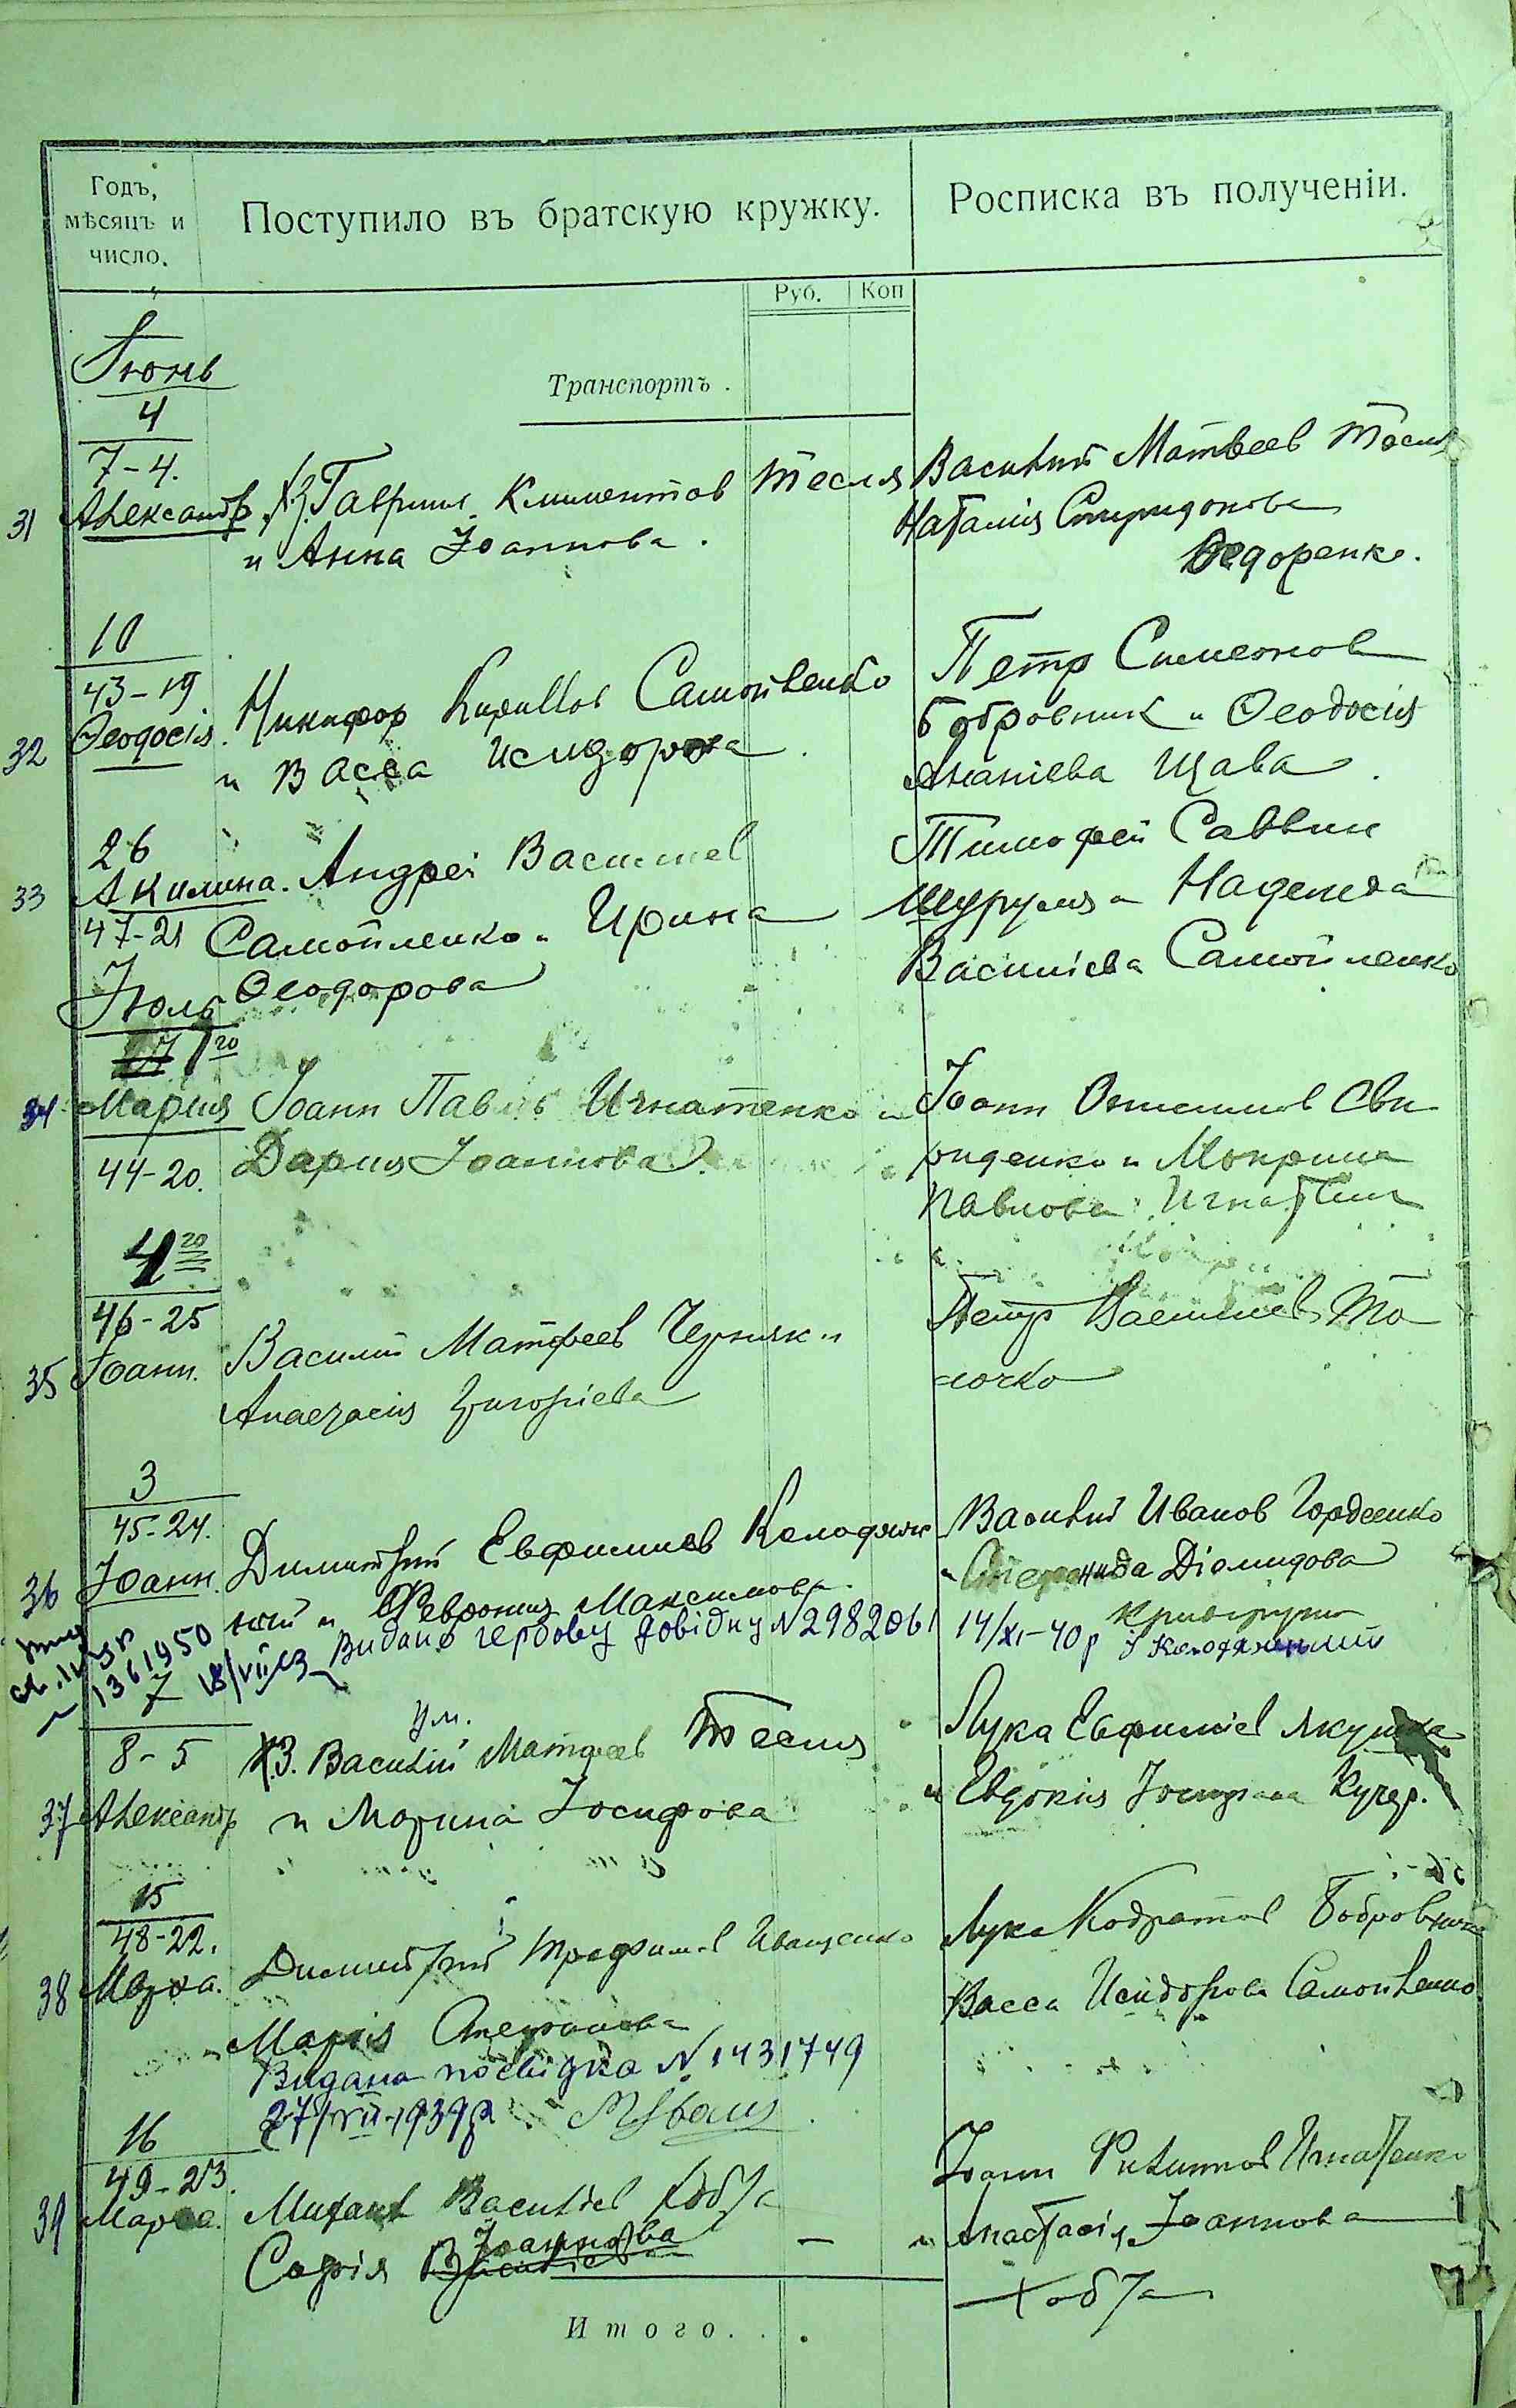 Годъ, мѣсяцъ и число.
Поступило въ братскую кружку.
Росписка въ полученіи.
Руб. Коп
Транспортъ.
Іюнь
4
7-4.
31 Александр. Х.З. Гавриил Климентов Тесля
и Анна Іоаннова.
Василий Матвеев Тесля
Наталия Спиридонова
Федоренко.
10
43-19
32 Феодосія. Никифор Кирилов Самойленко
и Васса Исидорова
Петр Симеонов
Бобровник и Феодосія
Ананіева Щава
26
33 Акилина. Андрей Василиев
47-21 Самойленко и Ирина
Феодорова
Тимофей Саввин
Шуруля и Надежда
Василіева Самойленко
Іюль
1 20
34 Мария Іоанн Павлов Игнатенко и
44-20. Дария Іоаннова
Іоанн Свириденко и Мокрина
Павлова Игнатенко
4 20
46-25
35 Іоанн. Василий Матфеев Черняк и
Анастасия Григоріева
Петр Василиев То
лочко
3
45-24.
36 Іоанн. Димитрий Евфимиев Колодяж
ный и Феврония Максимова.
Видано гербову довідку №298206
Василий Иванов Гордеенко
и Степанида Діомидова
14/XI-40р
1361950
7
8-5 Х.З. Василий Матфеев Тесля
ум.
37 Александр и Марина Іосифова
Лука Евфимиев Якушка
и Евдокия Іосифова Кучер.
15
48-22.
38 Марфа. Димитрий Трофимов Иващенко
Марія Стефанова
Видана посвідка № 1431749
27/VII-1939р
Лука Кодратов Бобровник
Васса Исидорова Самойленко
16
49-23.
39 Марфа. Михаил Василіев Хобта
Софія Василіева Іоаннова
Іоанн Филиппов Игнатенко
и Анастасія Іоаннова
Хобта
Итого.